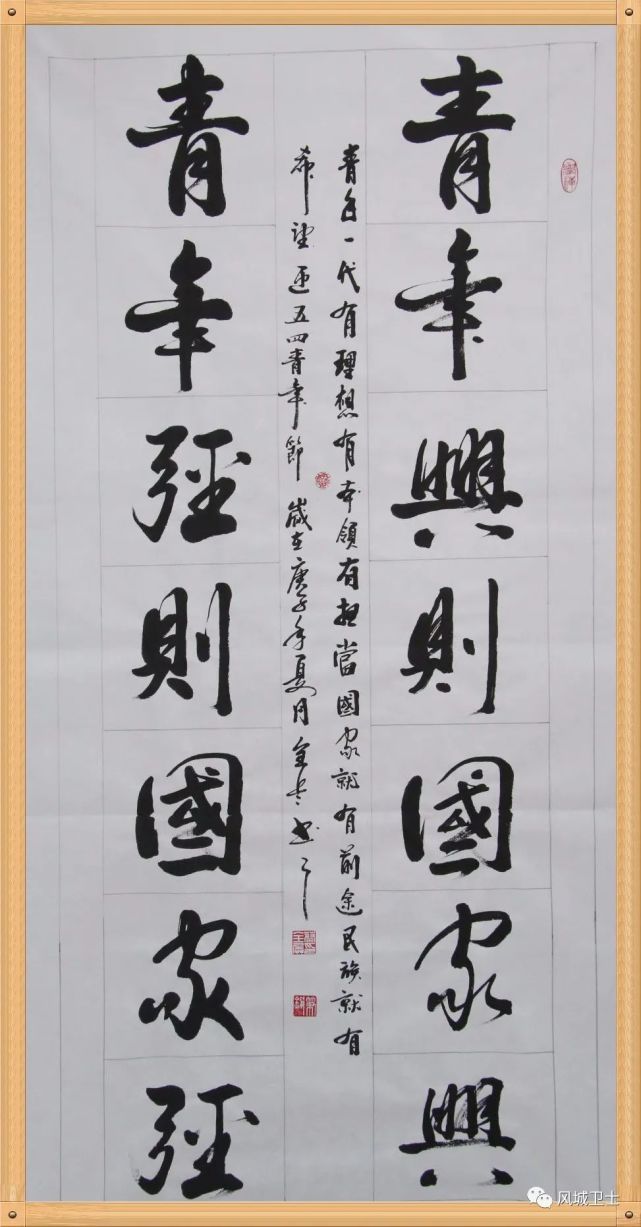 青年興則國家興
青年一代有理想有本領有担當國家就有前途民族就有
希望 迎五四青年節 歲在庚子年夏月 書
青年强則國家强
风城卫士